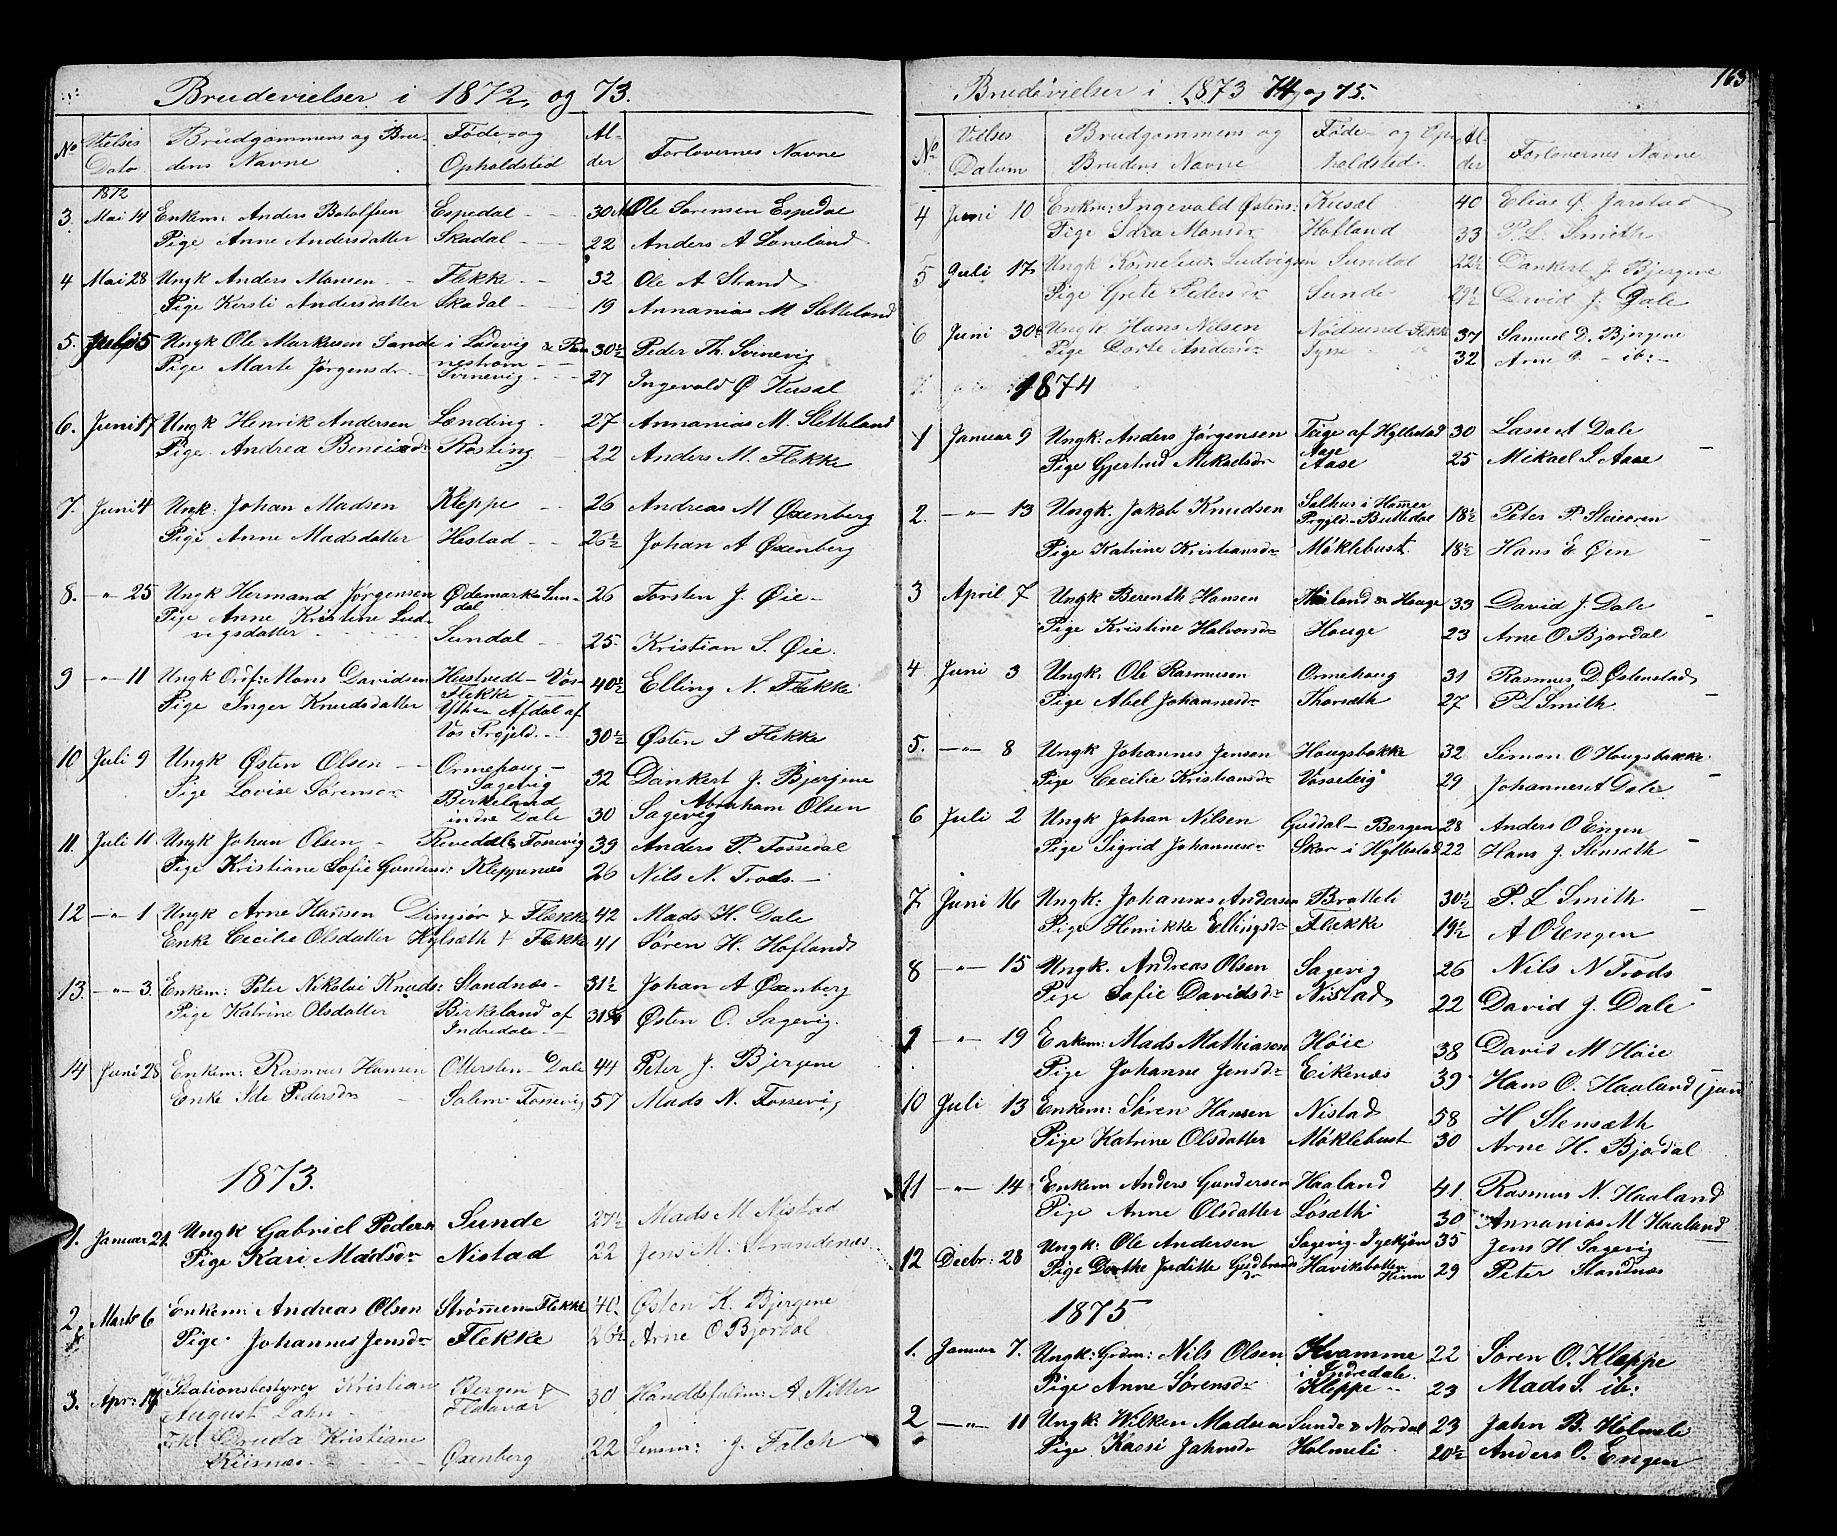 Brudevielser i 1872 og 73.
No Vielses Dato Brudgommens og Brudens Navne Føde- og Opholdsted Alder Forlovernes Navne
1872
3. Mai 14 Enkem: Anders Botolfsen Espedal 30 Ole Sørensen Espedal
Pige Anne Andersdatter Skadal 22 Anders A Loneland
4 Mai 28 Ungk Anders Monsen Flekke 32 Ole A Strand
Pige Kersti Andersdatter Skadal 19 Annanias M Sletteland
5. Juli 5 Ungk Ole Markusen Sande i Ladvig & 30½ Peder Th. Svinevig
Pige Marte Jørgensdr Svinevig 27 Ingevald Ø Kusal
6. Juni 17 Ungk Henrik Andersen Lænding 27 Annanias M. Sletteland
Pige Andrea Røsting 22 Anders M. Flekke
7. Juni 4 Ungk: Johan Madsen Kleppe 26 Andreas M Øxenberg
Pige Anne Madsdatter Hestad 26½ Johan A Øxenberg
8. -"- 25 Ungk Hermand Jørgensen Ødemark Sun- 26 Torsten J. Øie
dal
Pige Anne Kristine Lud-
vigsdatter Sundal 25 Kristian S. Øie.
9 -"- 11 Ungk Mons Davidsen Hustvedt Vos- 40½ Elling N. Flekke
Flekke
Pige Inger Knudsdatter Ytre Afdal af
Vos Prgjeld 30½ Østen I Flekke
10 Juli 9 Ungk Østen Olsen Ormehoug 32 Dankert J. Bjergene
Sagevig
Pige Lovise Sørensdr Birkeland 30 Abraham Olsen
indre Dale Sagevig
11. Juli 11 Ungk Johan Olsen Revedal & Fossevig 39 Anders P. Fossedal
Pige Kristiane Sofie Gundersdr Kleppenæs 26 Nils N. Trods
12 -"- 1 Ungk Arne Hansen Dingiør & Flekke 42 Mads H. Dale
Enke Cecilie Olsdatter & Flekke 41 Søren H. Hofland
13. -"- 3. Enkem: Peter Nikolai Knuds: Standnæs 31½ Johan A Øxenberg
Pige Katrine Olsdatter Birkeland af 31 Østen O. Sagevig.
Indredale
14 Juni 28 Enkem: Rasmus Hansen Ottersten Dale 44 Peter J. Bjergene
Enke Ide Pedersdr Fossevig 57 Mads N. Fossevig
1873.
1. Januar 21. Ungk Gabriel Peders Sunde 27½ Mads M Nistad
Pige Kari Madsdr Nistad 22 Jens M. Strandenæs
2. Marts 6 Enkem: Andreas Olsen Strømen-Flekke 40 Østen K. Bjergene
Pige Johannes Jensdr Flekke 26½ Arne O Bjordal
3. Apr: 14 Stationsbestyrer Kristian Bergen & 30 A Nitter
August Dahn
Kristiane
Øxenberg 22 J. Falch
Brudevielser i 1873 74 og 75.
163
No Vielses Datum Brudgommens og Brudens Navne Føde- og Opholdsted Alder Forlovernes Navne
4 Juni 10 Enkm: Ingevald Østens: Kusal 40 Elias Ø. Jarstad
Pige Monsdr Hofland 33 P. L. Smith
5 Juli 17 Ungk Kornelius Ludvigsen Sundal 22½ Dankert J. Bjergene
Pige Grete Pedersdr Sunde 29½ David J. Dale
6 Juni 30 Ungk. Hans Nilsen Flekke 37 Samuel D. Bjergene
Pige Dorte Andersdr 32 Arne ib:
1874
1 Januar 9 Ungk: Anders Jørgensen Teige af Hyllestad 30 Lasse A Dale
Aase
Pige Gjertrud Mikaelsdr Aase 25 Mikael S. Aase
2. -"- 13 Ungk. Jakob Knudsen Salhus i Hammer 18½ Peter P. Steieren
Prgjld. Buttedal
Pige Katrine Kristiansdr Møklebust. 18½ Hans E Øen
3 April 7 Ungk Berenth Hansen & Houge 33 David J. Dale
Pige Kristine Halvorsdr Houge 23 Arne O Bjordal
4 Juni 3 Ungk. Ole Rasmusen Ormehoug 31 Rasmus D. Østenstad
Pige Abel Johannesdr Thorsæth 27 P L Smith.
5. -"- 8 Ungk Johannes Jensen Hougsbakke 32 Simon O Hougsbakke
Pige Cecilie Kristiansdr Vasseleig 29 Johannes A Dale.
6 Juli 2 Ungk Johan Nilsen Guddal- Bergen 28 Anders O Engen
Pige Sigrid Johannesdr Skor i Hyllestad 22 Hans J. Stensæth
7 Juni 16 Ungk: Johannes Andersen Bratteli 30½ P. L Smith
Pige Henrikke Ellingsdr Flekke 19½ A O Engen
8 -"- 15 Ungk. Andreas Olsen Sagevig 26 Nils N Trods
Pige Sofie Davidsdr Nistad 22 David J. Dale
9 -"- 19 Enkem: Mads Mathiasen Høie 38 David M Høie
Pige Johanne Jensdr Eikenæs 39 Hans O. Haaland (jun
10 Juli 13 Enkem: Søren Hansen Nistad 58 H Stensæth
Pige Katrine Olsdatter Møklebust 30 Arne H. Bjordal
11 -"- 14 Enkem Anders Gundersen Haaland 41 Rasmus N. Haaland
Pige Anne Olsdatter Losæth 30 Annanias M Haaland
12 Decbr: 28 Ungk: Ole Andersen Sagevig 35 Jens H Sagevig
Pige Dorthe Juditte Gudbrands Havikbotten 29 Peter Standnæs
dr
1875
1. Januar 7. Ungk: Grdm: Nils Olsen Kvamme 22 Søren O. Kleppe
i Indredale.
Pige Anne Sørensdr Kleppe 23 Mads S. ib:
2 -"- 11 Ungk: Wilken Madsen Sunde & Nordal 23 John B. Holmeli
Pige Kassi Johnsdr Holmeli 20½ Anders O. Engen